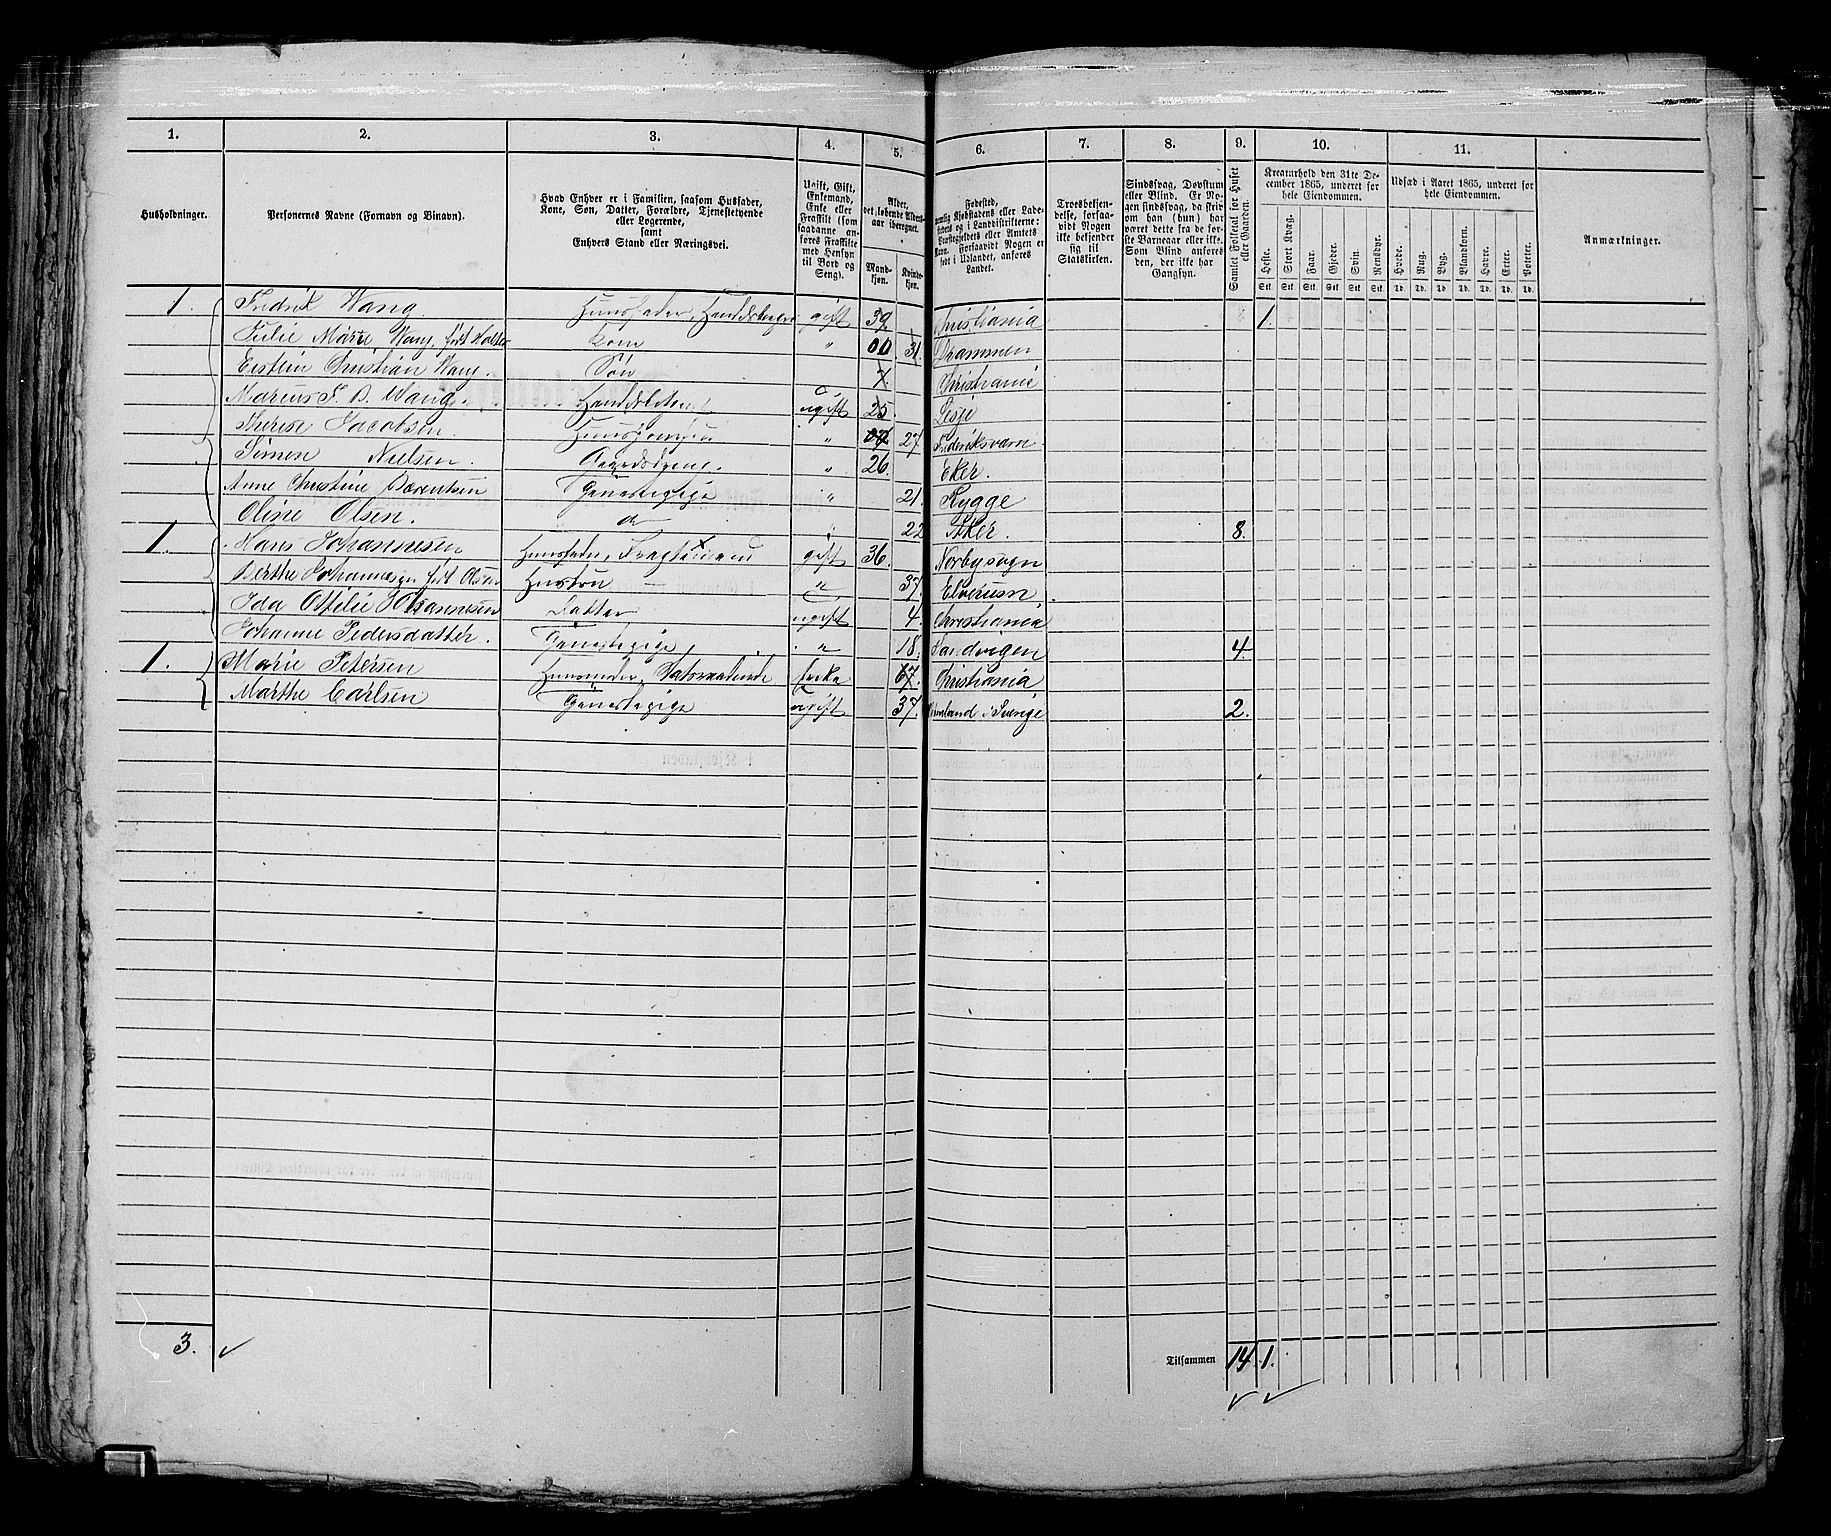 1. 2. 3. 4. 5. 6. 7. 8. 9. 10. 11.
Husholdninger.
Personernes Navne (Fornavn og Binavn).
Hvad Enhver er i Familien, saasom Husfader,
Kone, Søn, Datter, Forældre, Tjenestetyende
eller Logerende,
samt
Enhvers Stand eller Næringsvei.
Ugift, Gift,
Enkemand,
Enke eller
Fraskilt (som
saadanne an-
føres Fraskilte
med Hensyn
til Bord og
Seng).
Alder,
det løbende Alders-
aar iberegnet.
Mand-
kjøn.
Kvinde-
kjøn.
Fødested,
nemlig Kjøbstadens eller Lade-
stedets og i Landdistrikterne:
Præstegjeldets eller Amtets
Navn. Forsaavidt Nogen er
født i Udlandet, anføres
Landet.
Troesbekjen-
delse, forsaa-
vidt Nogen
ikke bekjender
sig til
Statskirken.
Sindssvag, Døvstum
eller Blind. Er No-
gen sindssvag, da skriv
om han (hun) har
været dette fra de før-
ste Barneaar eller ikke.
Som Blind anføres
den, der ikke har
Gangsyn.
Samlet Folketal for Huset
eller Gaarden.
Kreaturhold den 31te De-
cember 1865, anført for
hele Eiendommen.
Heste. Stort Kvæg. Faar. Gjeder. Svin. Rensdyr.
Stk. Stk. Stk. Stk. Stk. Stk.
Udsæd i Aaret 1865, anført for
hele Eiendommen.
Hvede. Rug. Byg. Blandkorn. Havre. Erter. Poteter.
Td. Td. Td. Td. Td. Td. Td.
Anmærkninger.
1. Fredrik Wang. Huusfader, gift 39 Christiania 1.
Julie Marie Wang født Kone " 31. Drammen
Christian Wang. Søn 7 Christiania
Marius F. B. Wang. ugift 25. Lesje
Therese Jacobsen. " 27 Frederiksværn
Simen Nielsen. Gaardsdreng. " 26 Eker.
Anne Christine Berentsen Tjenestepige " 21. Rygge
Oline Olsen. do " 22 Aker. 8.
1. Hans Johannesen Huusfader, gift 36. Norbysogn
Berthe Johannesen født Olsen Hustru " 37. Elverum
Ida Otilie Johannesen Datter ugift 4. Christiania
Johanne Pedersdatter. Tjenestepige, " 18. Sandvigen 4.
1. Marie Petersen Enke 67. Christiania
Marthe Carlsen Tjenestepige ugift 37. i Sverige 2.
3.
Tilsammen 14. 1.